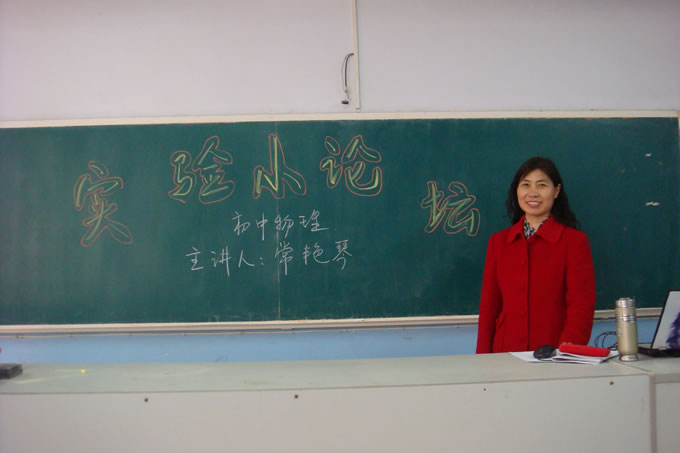 实验小论坛
初中物理
主讲人：常艳琴